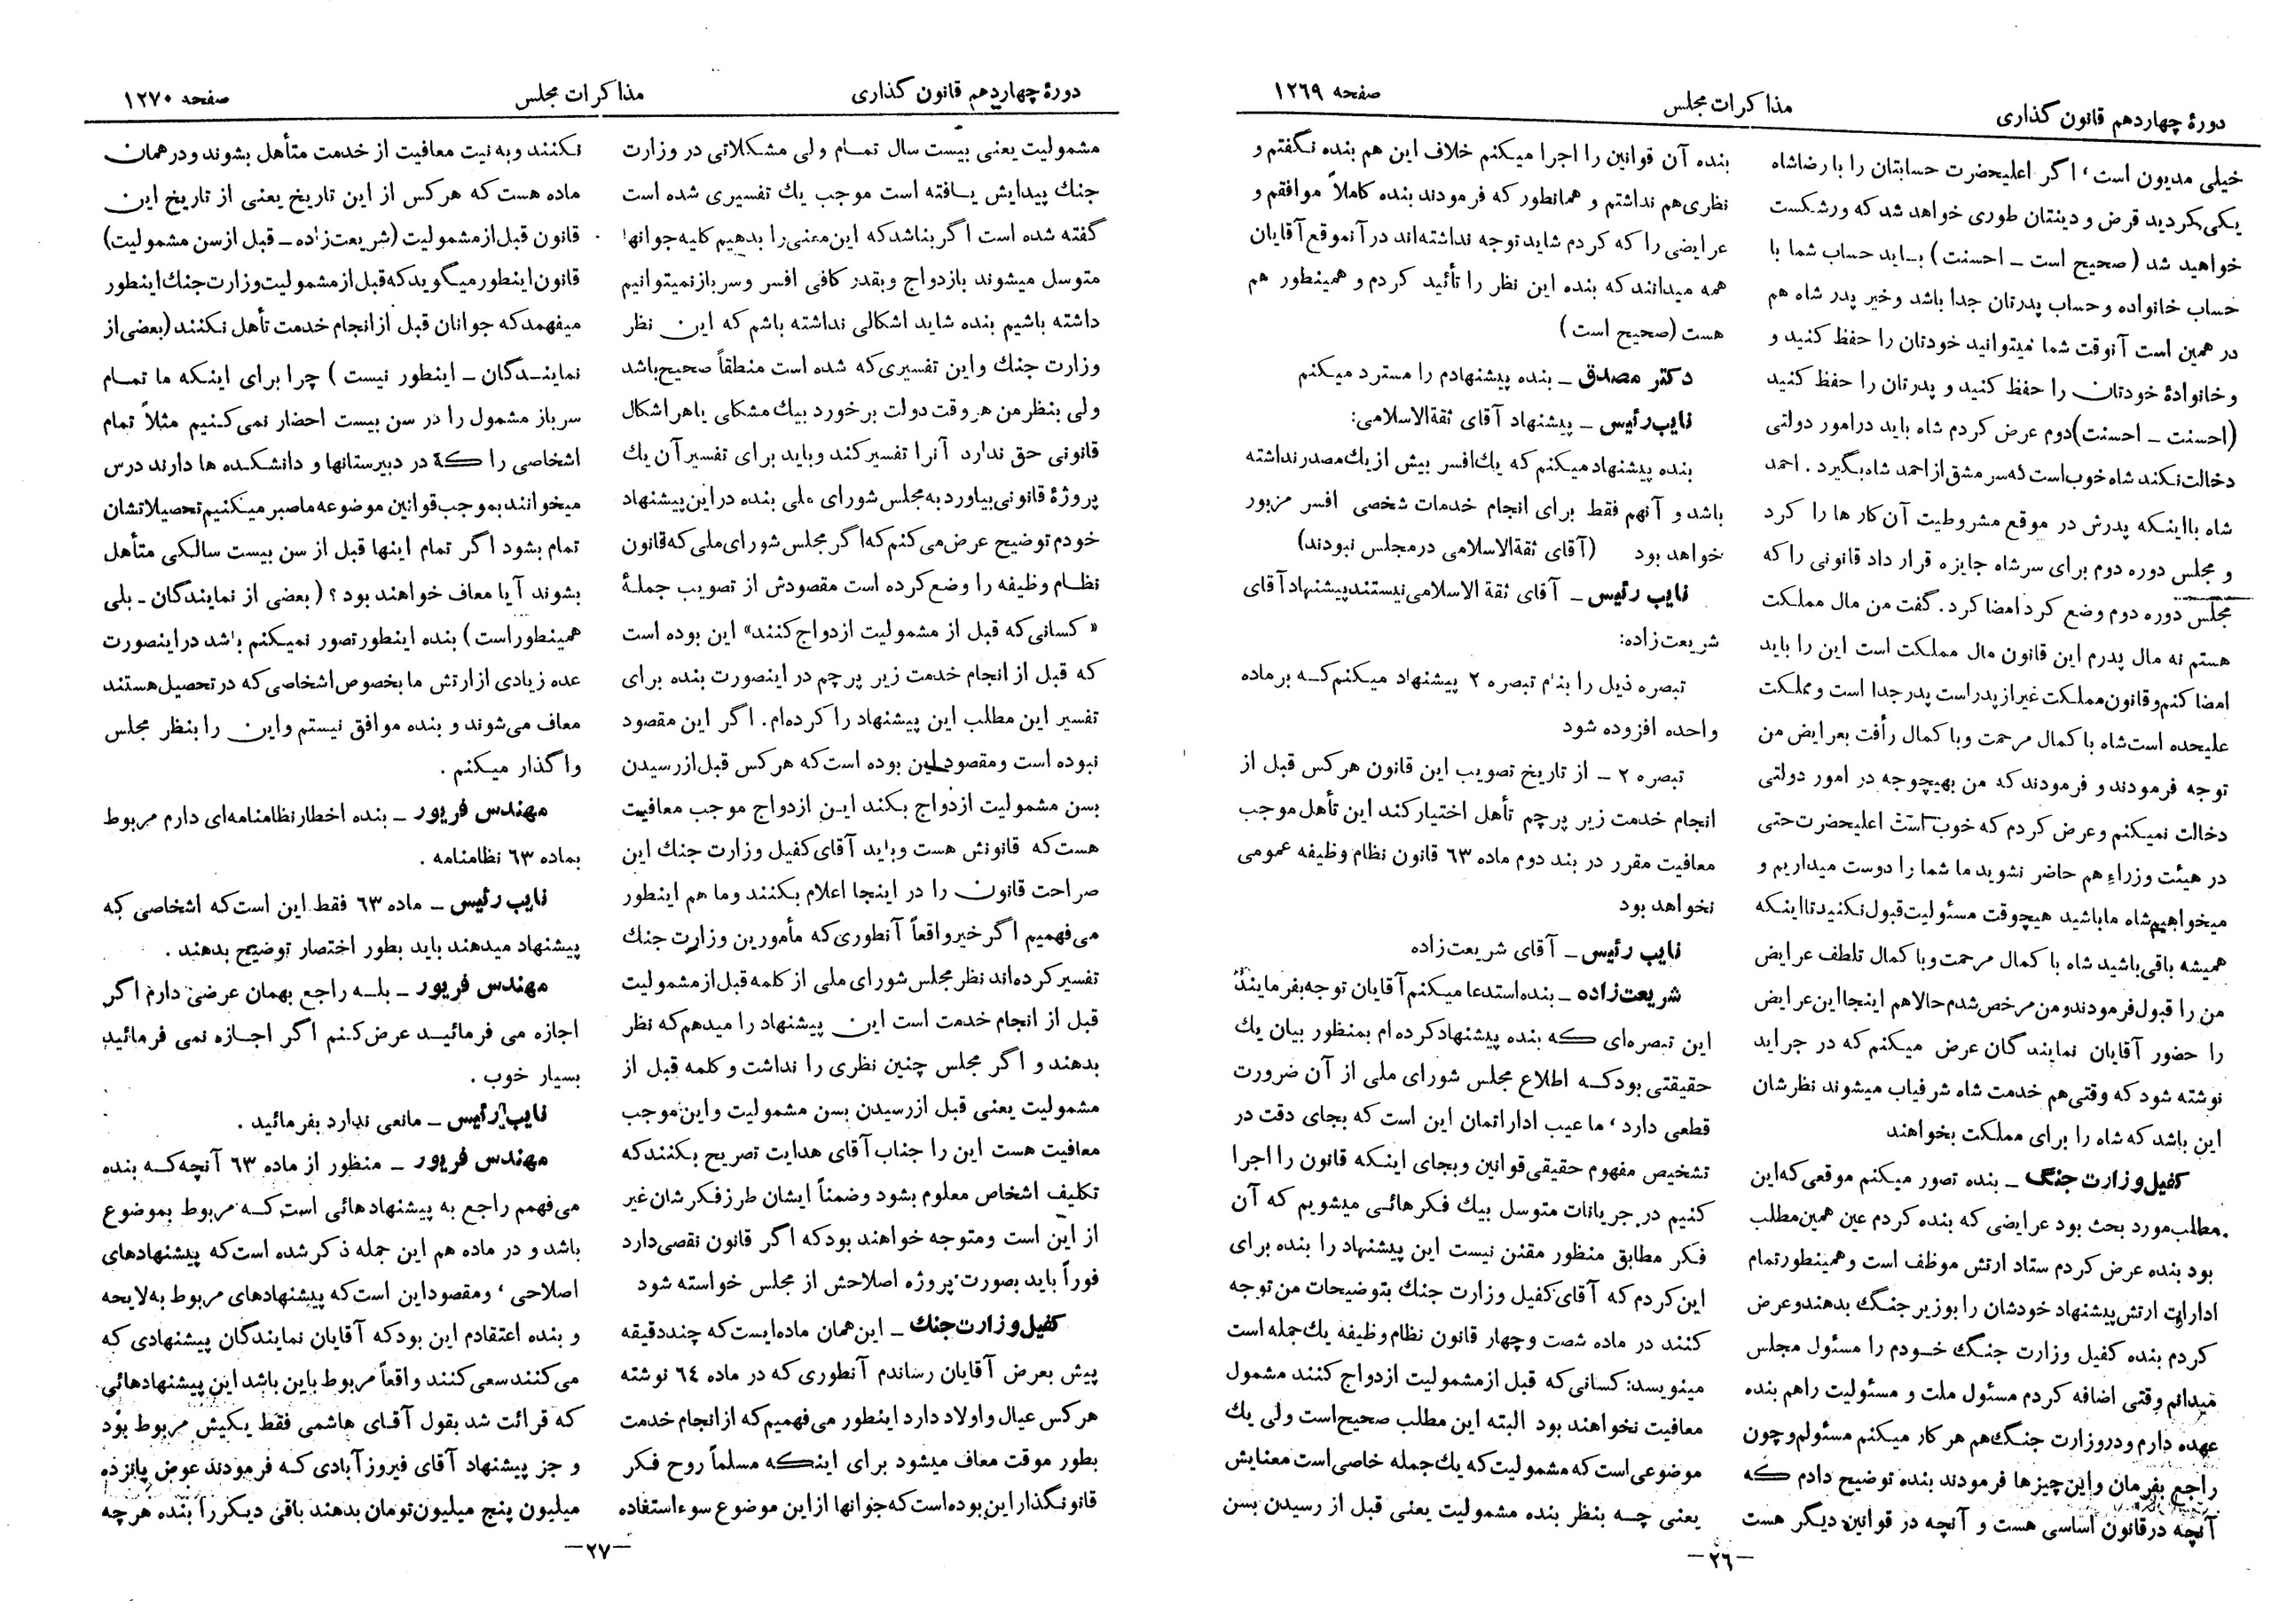 دورهٔ چهاردهم قانون گذاری
مذاکرات مجلس
صفحه ۱۲۶۹
خیلی مدیون است، اگر اعلیحضرت حسابتان را با رضاشاه
یکی بکردید قرض و دینتان طوری خواهد شد که ورشکست
خواهید شد (صحیح است ـ احسنت) بـاید حساب شما با
حساب خانواده و حساب پدرتان جدا باشد وخیر پدر شاه هم
در همین است آنوقت شما میتوانید خودتان را حفظ کنید و
و خانوادهٔ خودتان را حفظ کنید و پدرتان را حفظ کنید
(احسنت ـ احسنت) دوم عرض کردم شاه باید درامور دولتی
دخالت نکند شاه خوب است که سر مشق از احمد شاه بگیرد . احمد
شاه بااینکه پدرش در موقع مشروطیت آن کار ها را کرد
و مجلس دوره دوم برای سرشاه جایزه قرار داد قانونی را که
مجلس دوره دوم وضع کرد امضا کرد. گفت من مال مملکت
هستم نه مال پدرم این قانون مال مملکت است این را باید
امضا کنم و قانون مملکت غیر از پدر است پدر جدا است و مملکت
علیحده است شاه با کمال مرحمت و با کمال رأفت بعرایض من
توجه فرمودند و فرمودند که من بهیچوجه در امور دولتی
دخالت نمیکنم و عرض کردم که خوب است اعلیحضرت حتی
در هیئت وزراء هم حاضر نشوید ما شما را دوست میداریم و
میخواهیم شاه ما باشید هیچوقت مسئولیت قبول نکنید تا اینکه
همیشه باقی باشید شاه با کمال مرحمت و با کمال تلطف عرایض
من را قبول فرمودند و من مرخص شدم حالا هم اینجا این عرایض
را حضور آقایان نمایندگان عرض میکنم که در جراید
نوشته شود که وقتی هم خدمت شاه شرفیاب میشوند نظرشان
این باشد که شاه را برای مملکت بخواهند
کفیل وزارت جنگ ـ بنده تصور میکنم موقعی که این
مطلب مورد بحث بود عرایضی که بنده کردم عین همین مطلب
بود بنده عرض کردم ستاد ارتش موظف است و همینطور تمام
ادارات ارتش پیشنهاد خودشان را بوزیر جنگ بدهند و عرض
کردم بنده کفیل وزارت جنگ خـودم را مسئول مجلس
میدانم وقتی اضافه کردم مسئول ملت و مسئولیت را هم بنده
عهده دارم و در وزارت جنگ هم هر کار میکنم مسئولم و چون
راجع بفرمان و این چیزها فرمودند بنده توضیح دادم که
آنچه در قانون اساسی هست و آنچه در قوانین دیگر هست
بنده آن قوانین را اجرا میکنم خلاف این هم بنده نگفتم و
نظری هم نداشتم و همانطور که فرمودند بنده کاملاً موافقم و
عرایضی را که کردم شاید توجه نداشته‌اند در آنموقع آقایان
همه میدانند که بنده این نظر را تأئید کردم و همینطور هم
هست (صحیح است)
دکتر مصدق ـ بنده پیشنهادم را مسترد میکنم
نایب رئیس ـ پیشنهاد آقای ثقةالاسلامی:
بنده پیشنهاد میکنم که یك افسر بیش از یك مصدر نداشته
باشد و آنهم فقط برای انجام خدمات شخصی افسر مزبور
خواهد بود (آقای ثقةالاسلامی در مجلس نبودند)
نایب رئیس ـ آقای ثقة الاسلامی نیستند پیشنهاد آقای
شریعت‌زاده:
تبصره ذیل را بنام تبصره ۲ پیشنهاد میکنم کـه بر ماده
واحده افزوده شود
تبصره ۲ ـ از تاریخ تصویب این قانون هر کس قبل از
انجام خدمت زیر پرچم تأهل اختیار کند این تأهل موجب
معافیت مقرر در بند دوم ماده ۶۳ قانون نظام وظیفه عمومی
نخواهد بود
نایب رئیس ـ آقای شریعت‌زاده
شریعت‌زاده ـ بنده استدعا میکنم آقایان توجه بفرمایند
این تبصره‌ای که بنده پیشنهاد کرده ام بمنظور بیان یك
حقیقتی بود کـه اطلاع مجلس شورای ملی از آن ضرورت
قطعی دارد، ما عیب اداراتمان این است که بجای دقت در
تشخیص مفهوم حقیقی قوانین و بجای اینکه قانون را اجرا
کنیم در جریانات متوسل بیك فکر هائـی میشویم که آن
فکر مطابق منظور مقنن نیست این پیشنهاد را بنده برای
این کردم که آقای کفیل وزارت جنك بتوضیحات من توجه
کنند در ماده شصت و چهار قانون نظام وظیفه یك جمله است
مینویسد: کسانی که قبل از مشمولیت ازدواج کنند مشمول
معافیت نخواهند بود البته این مطلب صحیح است ولی یك
موضوعی است که مشمولیت که یك جمله خاصی است معنایش
یعنی چـه بنظر بنده مشمولیت یعنی قبل از رسیدن بسن
ـ۲۶ـ
دورهٔ چهاردهم قانون گذاری
مذاکرات مجلس
صفحه ۱۲۷۰
مشمولیت یعنی بیست سال تمـام ولی مشکلاتی در وزارت
جنك پیدایش یـافته است موجب یك تفسیری شده است
گفته شده است اگر بنا شد که این معنی را بدهیم کلیه جوانها
متوسل میشوند بازدواج و بقدر کافی افسر و سرباز نمیتوانیم
داشته باشیم بنده شاید اشکالی نداشته باشم که این نظر
وزارت جنك و این تفسیری که شده است منطقاً صحیح باشد
ولی بنظر من هر وقت دولت برخورد بیك مشکلی یا هر اشکال
قانونی حق ندارد آنرا تفسیر کند و باید برای تفسیر آن یك
پروژهٔ قانونی بیاورد به مجلس شورای ملی بنده در این پیشنهاد
خودم توضیح عرض می‌کنم که اگر مجلس شورای ملی که قانون
نظـام وظیفه را وضع کرده است مقصودش از تصویب جملهٔ
« کسانی که قبل از مشمولیت ازدواج کنند» این بوده است
که قبل از انجام خدمت زیر پرچم در اینصورت بنده برای
تفسیر این مطلب این پیشنهاد را کرده‌ام. اگر این مقصود
نبوده است و مقصود این بوده است که هر کس قبل از رسیدن
بسن مشمولیت ازدواج بکند این ازدواج موجب معافیت
هست که قانونش هست و باید آقای کفیل وزارت جنك این
صراحت قانون را در اینجا اعلام بکنند و ما هم اینطور
می‌فهمیم اگر خیر واقعاً آنطوری که مأمورین وزارت جنك
تفسیر کرده‌اند نظر مجلس شورای ملی از کلمه قبل از مشمولیت
قبل از انجام خدمت است این پیشنهاد را میدهم که نظر
بدهند و اگر مجلس چنین نظری را نداشت و کلمه قبل از
مشمولیت یعنی قبل از رسیدن بسن مشمولیت و این موجب
معافیت هست این را جناب آقای هدایت تصریح بکنند که
تکلیف اشخاص معلوم بشود و ضمناً ایشان طرز فکر شان غیر
از این است و متوجه خواهند بود که اگر قانون نقصی دارد
فوراً باید بصورت پروژه اصلاحش از مجلس خواسته شود
کفیل وزارت جنك ـ این همان ماده‌ایست که چند دقیقه
پیش بعرض آقایان رساندم آنطوری که در ماده ۶۴ نوشته
هر کس عیال و اولاد دارد اینطور می‌فهمیم که از انجام خدمت
بطور موقت معاف میشود برای اینکه مسلماً روح فکر
قانونگذار این بوده است که جوانها از این موضوع سوء استفاده
نکنند و به نیت معافیت از خدمت متأهل بشوند و در همان
ماده هست که هر کس از این تاریخ یعنی از تاریخ این
قانون قبل از مشمولیت (شریعت‌زاده ـ قبل از سن مشمولیت)
قانون اینطور میگوید که قبل از مشمولیت وزارت جنك اینطور
میفهمد که جوانان قبل از انجام خدمت تأهل نکنند (بعضی از
نماینـدگان ـ اینطور نیست) چرا برای اینکه ما تمـام
سرباز مشمول را در سن بیست احضار نمی کنیم مثلاً تمام
اشخاصی را که در دبیرستانها و دانشکده ها دارند درس
میخوانند بموجب قوانین موضوعه ما صبر میکنیم تحصیلاتشان
تمام بشود اگر تمام اینها قبل از سن بیست سالگی متأهل
بشوند آیا معاف خواهند بود؟ (بعضی از نمایندگان ـ بلی
همینطور است) بنده اینطور تصور نمیکنم باشد در اینصورت
عده زیادی از ارتش ما بخصوص اشخاصی که در تحصیل هستند
معاف می‌شوند و بنده موافق نیستم و این را بنظر مجلس
واگذار میکنم .
مهندس فریور ـ بنده اخطار نظامنامه‌ای دارم مربوط
بماده ۶۳ نظامنامه .
نایب رئیس ـ ماده ۶۳ فقط این است که اشخاصی که
پیشنهاد میدهند باید بطور اختصار توضیح بدهند .
مهندس فریور ـ بلـه راجع بهمان عرضی دارم اگر
اجازه می فرمائیـد عرض کنم اگر اجـازه نمی فرمائید
بسیار خوب .
نایب رئیس ـ مانعی ندارد بفرمائید .
مهندس فریور ـ منظور از ماده ۶۳ آنچه کـه بنده
می‌فهمم راجع به پیشنهاد هائی است کـه مربوط بموضوع
باشد و در ماده هم این جمله ذکر شده است که پیشنهادهای
اصلاحی، و مقصود این است که پیشنهادهای مربوط به لایحه
و بنده اعتقادم این بود که آقایان نمایندگان پیشنهادی که
می‌کنند سعی کنند واقعاً مربوط باین باشد این پیشنهادهائی
که قرائت شد بقول آقـای هاشمی فقط یکیش مربوط بود
و جز پیشنهاد آقای فیروزآبادی کـه فرمودند عوض پانزده
میلیون پنج میلیون تومان بدهند باقی دیگر را بنده هر چه
ـ۲۷ـ